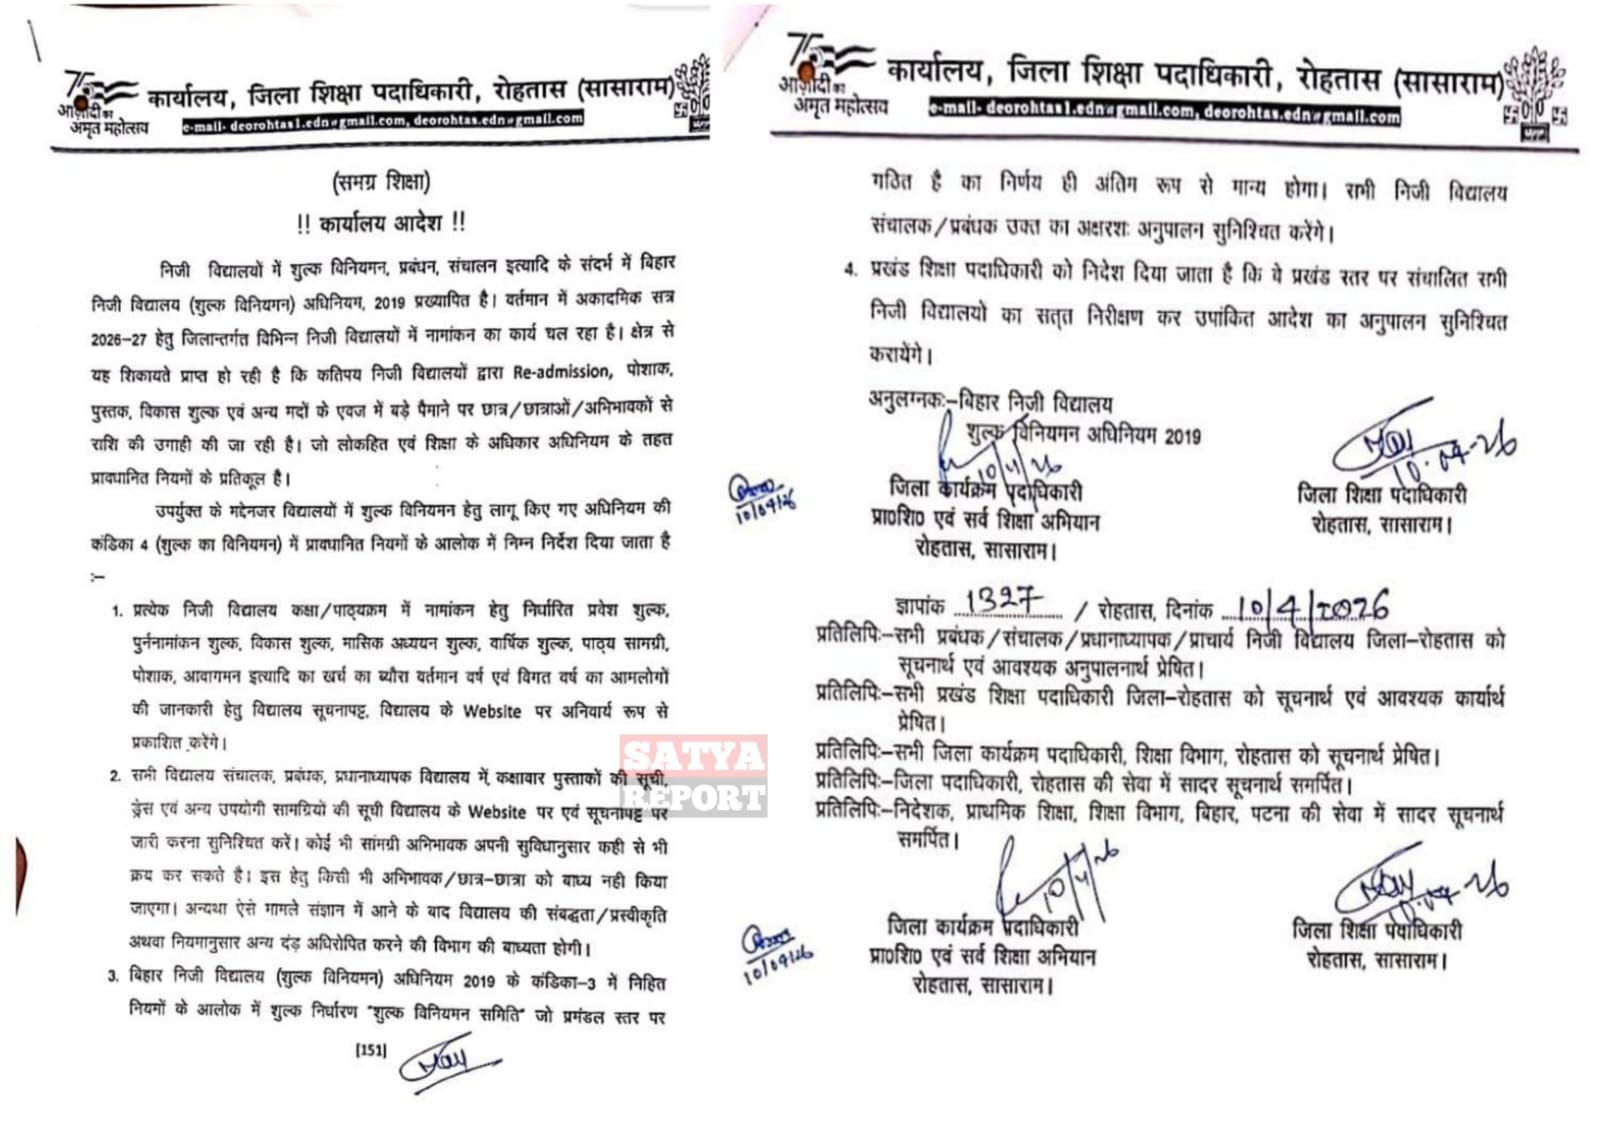 75
आज़ादी का
अमृत महोत्सव
कार्यालय, जिला शिक्षा पदाधिकारी, रोहतास (सासाराम)
e-mail- deorohtas1.edn@gmail.com, deorohtas.edn@gmail.com
(समग्र शिक्षा)
!! कार्यालय आदेश !!
निजी विद्यालयों में शुल्क विनियमन, प्रबंधन, संचालन इत्यादि के संदर्भ में बिहार
निजी विद्यालय (शुल्क विनियमन) अधिनियम, 2019 प्रख्यापित है। वर्तमान में अकादमिक सत्र
2026-27 हेतु जिलान्तर्गत विभिन्न निजी विद्यालयों में नामांकन का कार्य चल रहा है। क्षेत्र से
यह शिकायते प्राप्त हो रही है कि कतिपय निजी विद्यालयों द्वारा Re-admission, पोशाक,
पुस्तक, विकास शुल्क एवं अन्य मदों के एवज में बड़े पैमाने पर छात्र/छात्राओं/अभिभावकों से
राशि की उगाही की जा रही है। जो लोकहित एवं शिक्षा के अधिकार अधिनियम के तहत
प्रावधानित नियमों के प्रतिकूल है।
उपर्युक्त के मद्देनजर विद्यालयों में शुल्क विनियमन हेतु लागू किए गए अधिनियम की
कंडिका 4 (शुल्क का विनियमन) में प्रावधानित नियमों के आलोक में निम्न निर्देश दिया जाता है
:–
1. प्रत्येक निजी विद्यालय कक्षा/पाठ्यक्रम में नामांकन हेतु निर्धारित प्रवेश शुल्क,
पुर्ननामांकन शुल्क, विकास शुल्क, मासिक अध्ययन शुल्क, वार्षिक शुल्क, पाठ्य सामग्री,
पोशाक, आवागमन इत्यादि का खर्च का ब्यौरा वर्तमान वर्ष एवं विगत वर्ष का आमलोगों
की जानकारी हेतु विद्यालय सूचनापट्ट, विद्यालय के Website पर अनिवार्य रूप से
प्रकाशित करेंगे।
2. सभी विद्यालय संचालक, प्रबंधक, प्रधानाध्यापक विद्यालय में, कक्षावार पुस्तकों की सूची,
ड्रेस एवं अन्य उपयोगी सामग्रियों की सूची विद्यालय के Website पर एवं सूचनापट्ट पर
जारी करना सुनिश्चित करें। कोई भी सांमग्री अभिभावक अपनी सुविधानुसार कही से भी
क्रय कर सकते है। इस हेतु किसी भी अभिभावक/छात्र-छात्रा को बाध्य नही किया
जाएगा। अन्यथा ऐसे मामले संज्ञान में आने के बाद विद्यालय की संबद्धता/प्रस्वीकृति
अथवा नियमानुसार अन्य दंड़ अधिरोपित करने की विभाग की बाध्यता होगी।
3. बिहार निजी विद्यालय (शुल्क विनियमन) अधिनियम 2019 के कंडिका-3 में निहित
नियमों के आलोक में शुल्क निर्धारण "शुल्क विनियमन समिति" जो प्रमंडल स्तर पर
[151]
SATYA
REPORT
75
आज़ादी का
अमृत महोत्सव
कार्यालय, जिला शिक्षा पदाधिकारी, रोहतास (सासाराम)
e-mail- deorohtas1.edn@gmail.com, deorohtas.edn@gmail.com
गठित है का निर्णय ही अंतिम रूप से मान्य होगा। सभी निजी विद्यालय
संचालक/प्रबंधक उक्त का अक्षरशः अनुपालन सुनिश्चित करेंगे।
4. प्रखंड शिक्षा पदाधिकारी को निदेश दिया जाता है कि वे प्रखंड स्तर पर संचालित सभी
निजी विद्यालयो का सत्त निरीक्षण कर उपांकित आदेश का अनुपालन सुनिश्चित
करायेंगे।
अनुलग्नकः–बिहार निजी विद्यालय
शुल्क विनियमन अधिनियम 2019
10/4/26
10.04.26
10/04/26
जिला कार्यक्रम पदाधिकारी
प्रा0शि0 एवं सर्व शिक्षा अभियान
रोहतास, सासाराम।
जिला शिक्षा पदाधिकारी
रोहतास, सासाराम।
ज्ञापांक 1327 / रोहतास, दिनांक 10/4/2026
प्रतिलिपिः–सभी प्रबंधक/संचालक/प्रधानाध्यापक/प्राचार्य निजी विद्यालय जिला-रोहतास को
सूचनार्थ एवं आवश्यक अनुपालनार्थ प्रेषित।
प्रतिलिपिः–सभी प्रखंड शिक्षा पदाधिकारी जिला-रोहतास को सूचनार्थ एवं आवश्यक कार्यार्थ
प्रेषित।
प्रतिलिपिः–सभी जिला कार्यक्रम पदाधिकारी, शिक्षा विभाग, रोहतास को सूचनार्थ प्रेषित।
प्रतिलिपिः–जिला पदाधिकारी, रोहतास की सेवा में सादर सूचनार्थ समर्पित।
प्रतिलिपिः–निदेशक, प्राथमिक शिक्षा, शिक्षा विभाग, बिहार, पटना की सेवा में सादर सूचनार्थ
समर्पित।
10/4/26
10.04.26
10/04/26
जिला कार्यक्रम पदाधिकारी
प्रा0शि0 एवं सर्व शिक्षा अभियान
रोहतास, सासाराम।
जिला शिक्षा पदाधिकारी
रोहतास, सासाराम।